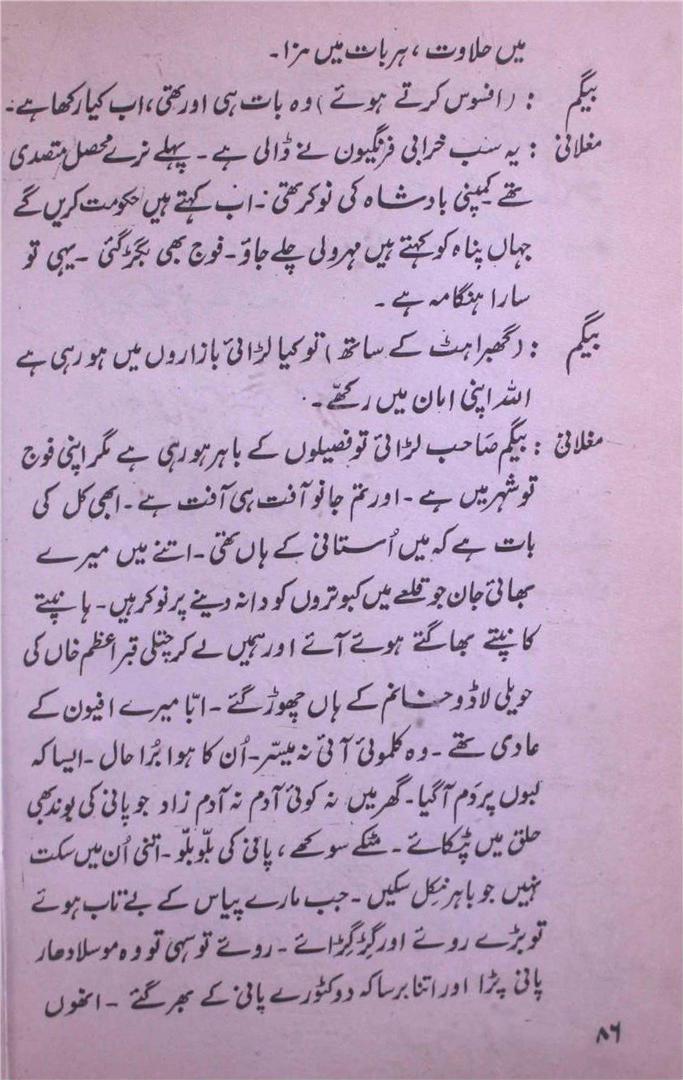 میں حلاوت ، ہر بات میں مزا۔
بیگم : (افسوس کرتے ہوئے) وہ بات ہی اور تھی، اب کیا رکھا ہے۔
مغلانی : یہ سب خرابی فرنگیوں نے ڈالی ہے۔ پہلے نرے محصل متصدی
تھے کمپنی بادشاہ کی نوکر تھی۔ اب کہتے ہیں حکومت کریں گے
جہاں پناہ کو کہتے ہیں مہرولی چلے جاؤ۔ فوج بھی بگڑ گئی ۔ یہی تو
سارا ہنگامہ ہے ۔
بیگم : (گھبراہٹ کے ساتھ) تو کیا لڑائی بازاروں میں ہو رہی ہے
اللہ اپنی امان میں رکھّے۔
مغلانی : بیگم صاحب لڑائی تو فصیلوں کے باہر ہو رہی ہے مگر اپنی فوج
تو شہر میں ہے ۔ اور تم جانو آفت ہی آفت ہے ۔ ابھی کل کی
بات ہے کہ میں اُستانی کے ہاں تھی ۔ اتنے میں میرے
بھائی جان جو قلعے میں کبوتروں کو دانہ دینے پر نوکر ہیں۔ ہانپتے
کانپتے بھاگتے ہوئے آئے اور ہمیں لے کر چتلی قبر اعظم خاں کی
حویلی لاڈو خانم کے ہاں چھوڑ گئے ۔ ابّا میرے افیون کے
عادی تھے ۔ وہ کلموئی آئی نہ میسّر۔ اُن کا ہوا بُرا حال ۔ ایسا کہ
لبوں پر دَم آگیا۔ گھر میں نہ کوئی آدم نہ آدم زاد جو پانی کی بوند بھی
حلق میں ٹپکائے ۔ مٹکے سوکھے ، پانی کی بلّو بلّو ۔ اتنی اُن میں سکت
نہیں جو باہر نکل سکیں ۔ جب مارے پیاس کے بے تاب ہوئے
تو بڑے روئے اور گِڑ گِڑائے ۔ روئے تو سہی تو وہ موسلا دھار
پانی پڑا اور اتنا برسا کہ دو کٹورے پانی کے بھر گئے ۔ انھوں
۸۶